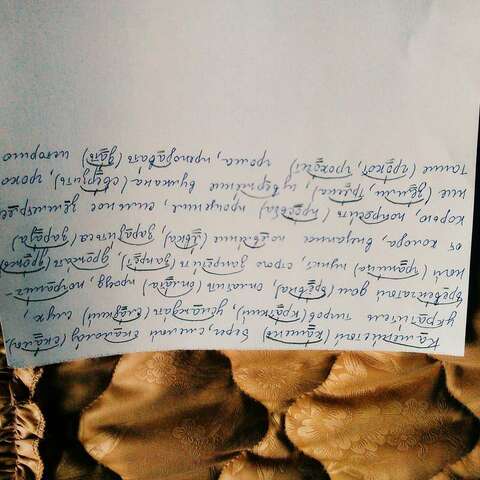 Каменистый (камень) берег, смелый скалолаз (скалы),
укратитель тигров (краткий), услаждать (сладкий) слух,
бревенчатый дом (брёвна), оплатить (оплата) проезд, погранич-
ный (граница) пункт, строго запретить (запрет), дрожать (дрожь)
от холода, внезапное появление (явка), заразиться (зараза)
корью, попросить (просьба) прощения, сильное землетрясе-
ние (земли, тряска), извержение вулкана (свергзить), грохо-
тание (грохот, грохочет) грома, преподавать (дать) историю